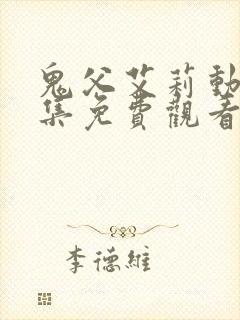 鬼父艾莉動
集免費觀看
李德維